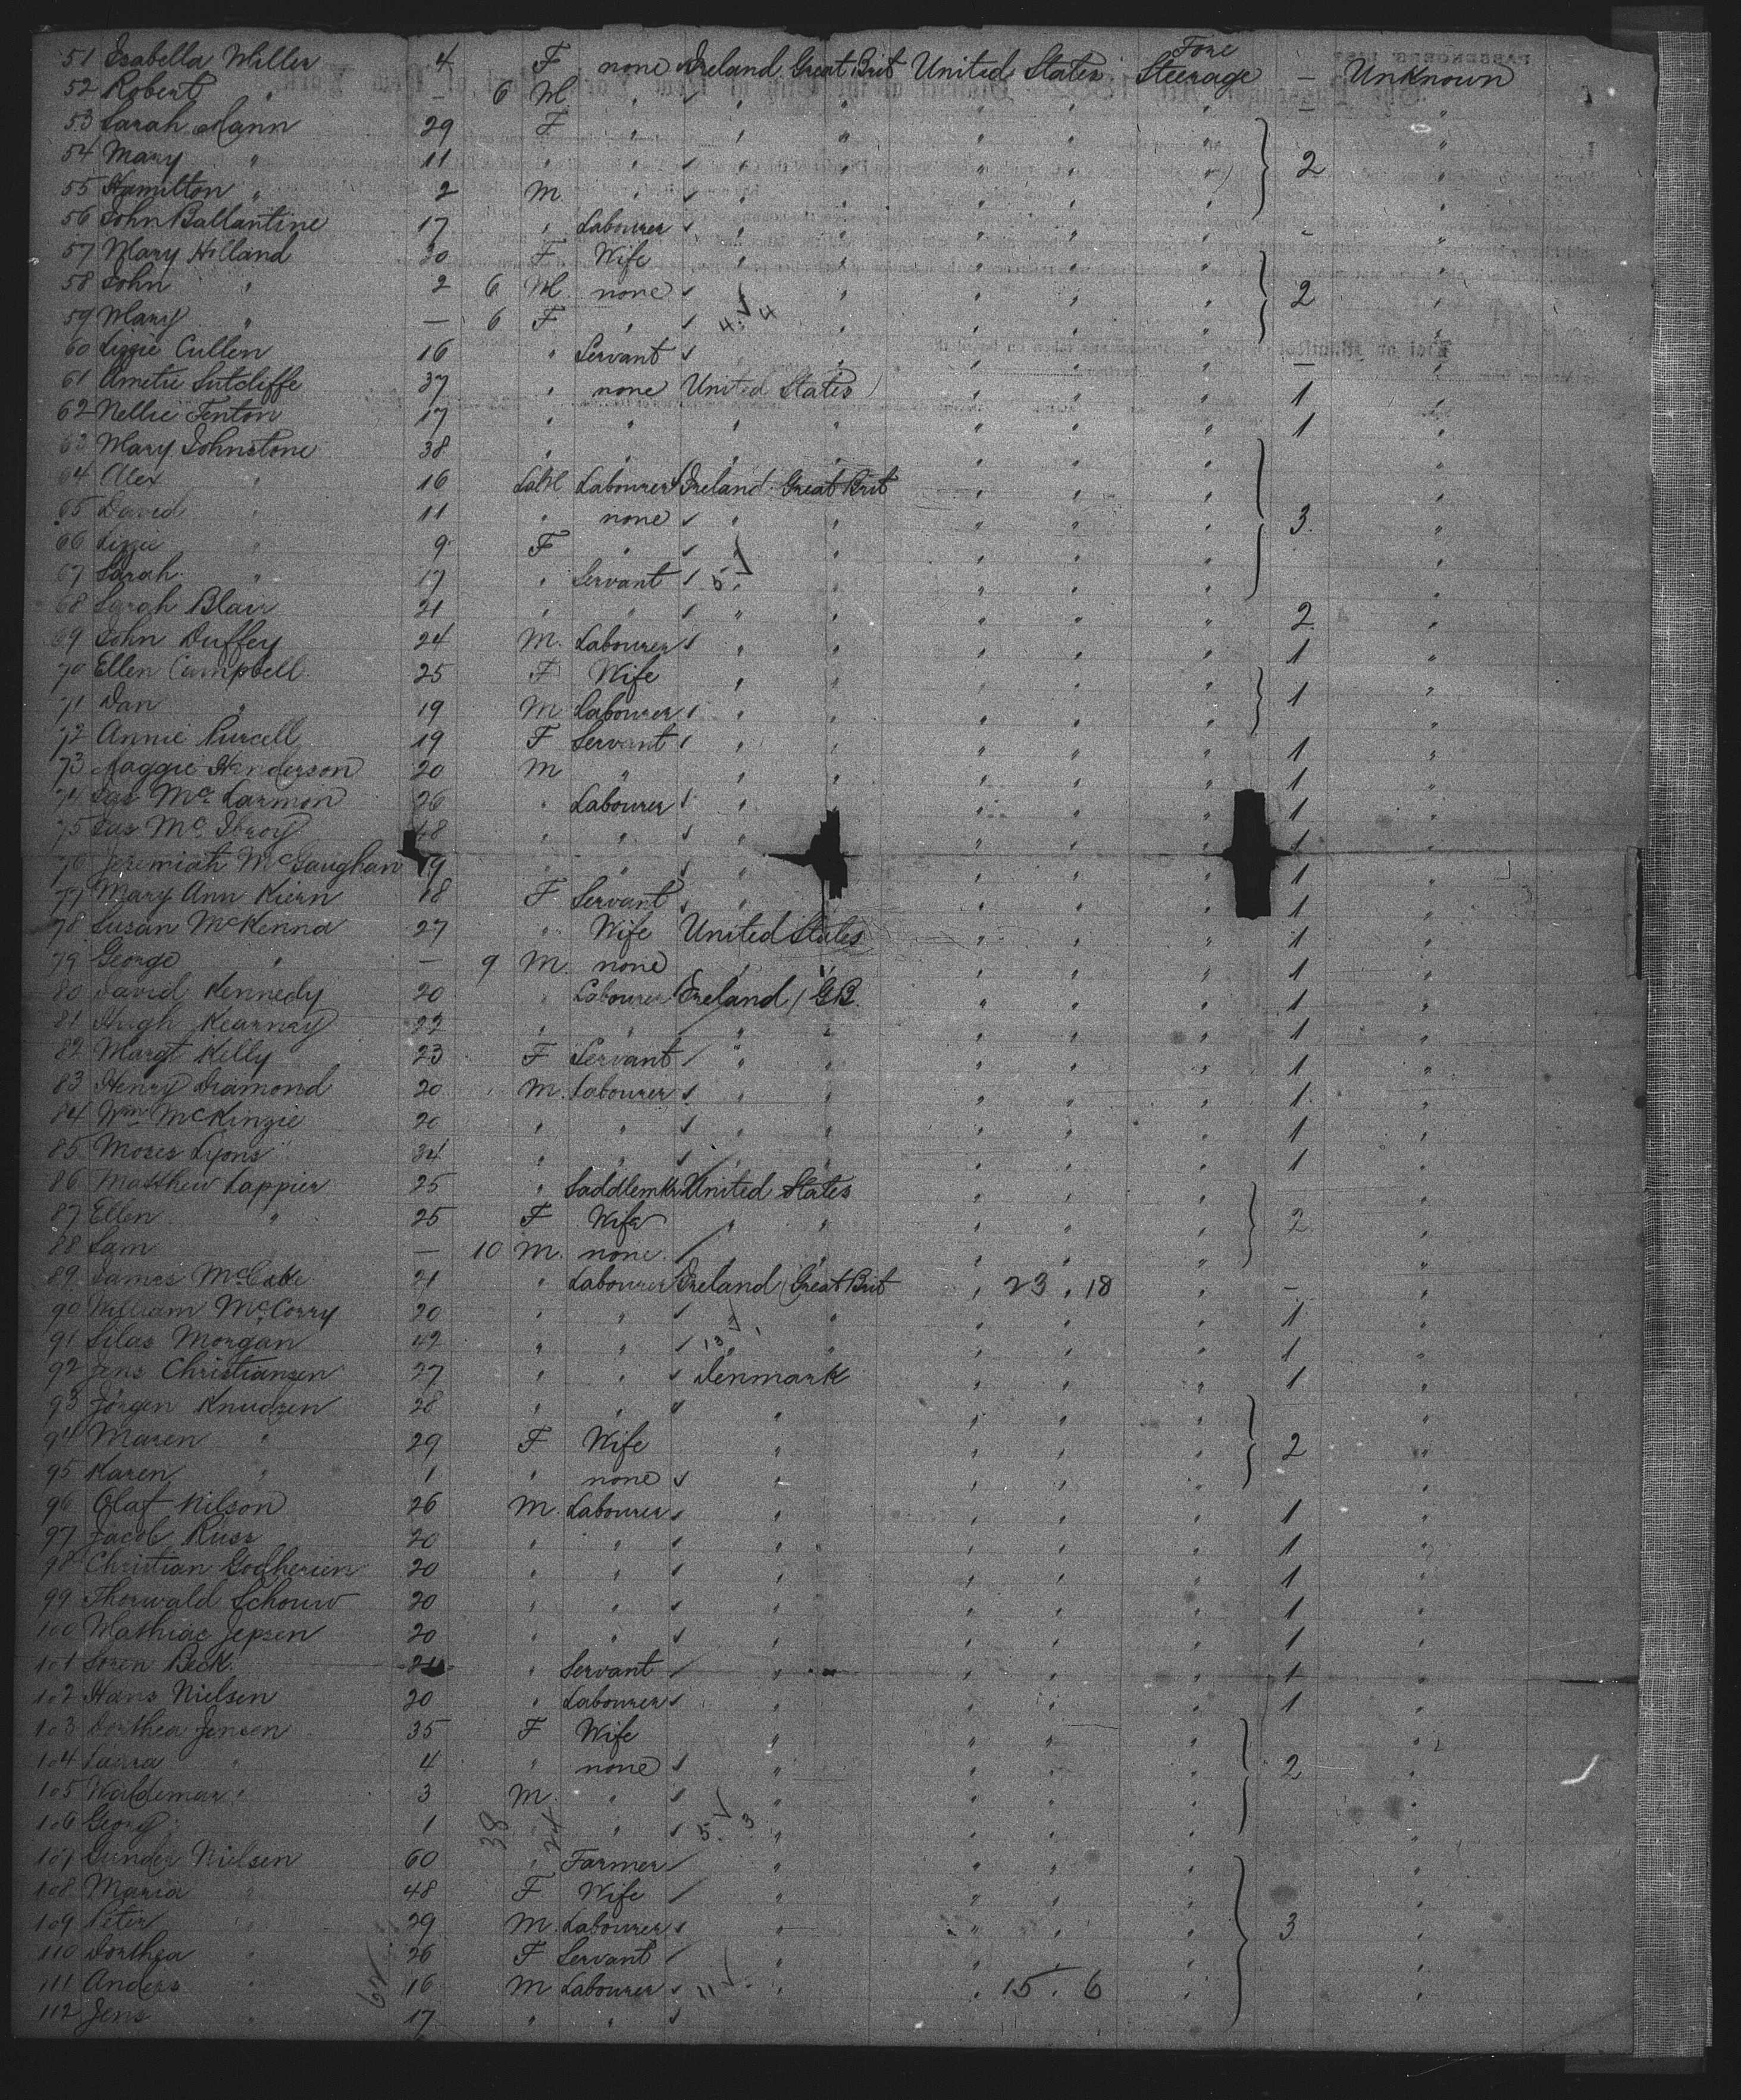 51 Isabella Miller 4 F none Ireland Great Brit United States Fore Steerage — Unknown
52 Robert " — 6 M " " " " " " — "
53 Sarah Mann 29 F " " " " " " "
54 Mary " 11 " " " " " " " 2 "
55 Hamilton " 2 M " " " " " " "
56 John Ballantine 17 " Labourer " " " " " - "
57 Mary Hilland 30 F Wife " " " " " "
58 John " 2 6 M none " " " " " 2 "
59 Mary " — 6 F " 4 4 " " " " "
60 Lizzie Cullen 16 " Servant " " " " — "
61 Sutcliffe 37 " none United States " " " 1 "
62 Nellie Fenton 17 " " " " " " " 1 "
63 Mary Johnstone 38 " " " " " " " "
64 Alex " 16 Labourer Ireland Great Brit " " " "
65 David " 11 " none " " " " " 3 "
66 Lizzie " 9 F " " " " " "
67 Sarah " 17 " Servant 5 " " " " "
68 Sarah Blair 21 " " " " " " " 2 "
69 John Duffey 24 M. Labourer " " " " " 1 "
70 Ellen Campbell 25 F Wife " " " " " 1 "
71 Dan " 19 M Labourer " " " " " "
72 Annie Purcell 19 F Servant " " " " " 1 "
73 Maggie Henderson 20 M " " " " " " 1 "
74 Jas Mc Larmon 26 " Labourer " " " " 1 "
75 Jas Mc Ilroy 48 " " " " " 1 "
76 Jeremiah McGaughan 19 " " " " " 1 "
77 Mary Ann Kiern 18 F Servant " " " " 1 "
78 Susan McKenna 27 " Wife United States " " " 1 "
79 George " — 9 M. none " " " " " 1 "
80 David Kennedy 20 " Labourer Ireland / GB. " " " 1 "
81 Hugh Kearnay 22 " " " " " " " 1 "
82 Margt Kelly 23 F Servant " " " " " 1 "
83 Henry Diamond 20 M. Labourer " " " " " 1 "
84 Wm McKinzie 20 " " " " " " " 1 "
85 Moses Lyons 34 " " " " " " " 1 "
86 Matthew Lappier 25 " Saddlemkr United States " " " "
87 Ellen " 25 F Wife " " " " " 2 "
88 Sam — 10 M. none. " " " " "
89 James McCabe 21 " Labourer Ireland Great Brit " 23 . 18 " — "
90 William McCorry 20 " " " " " " 1 "
91 Silas Morgan 42 " " 13 " " " " 1 "
92 Jens Christiansen 27 " " Denmark " " " 1 "
93 Jörgen Knudsen 28 " " " " " " "
94 Maren " 29 F Wife " " " " 2 "
95 Karen " 1 " none " " " " "
96 Olaf Nilson 26 M. Labourer " " " " 1 "
97 Jacob Kuss 20 " " " " " " 1 "
98 Christian 20 " " " " " " 1 "
99 Thorwald Schouw 20 " " " " " " 1 "
100 Mathias Jepsen 20 " " " " " " 1 "
101 Soren Beck " Servant " " " " 1 "
102 Hans Nielsen 20 " Labourer " " " " 1 "
103 Dorthea Jensen 35 F Wife " " " " "
104 Laura " 4 " none " " " " 2 "
105 Waldemar " 3 M. " " " " " "
106 Georg 1 38 24 " 5 3 " " " " "
107 Gunder Nielsen 60 " Farmer " " " " "
108 Maria " 48 F Wife " " " " "
109 Peter " 29 M. Labourer " " " " 3 "
110 Dorthea " 26 F Servant " " " " "
111 Anders " 62 16 M Labourer 11 " " 15 . 6 " "
112 Jens " 17 " "